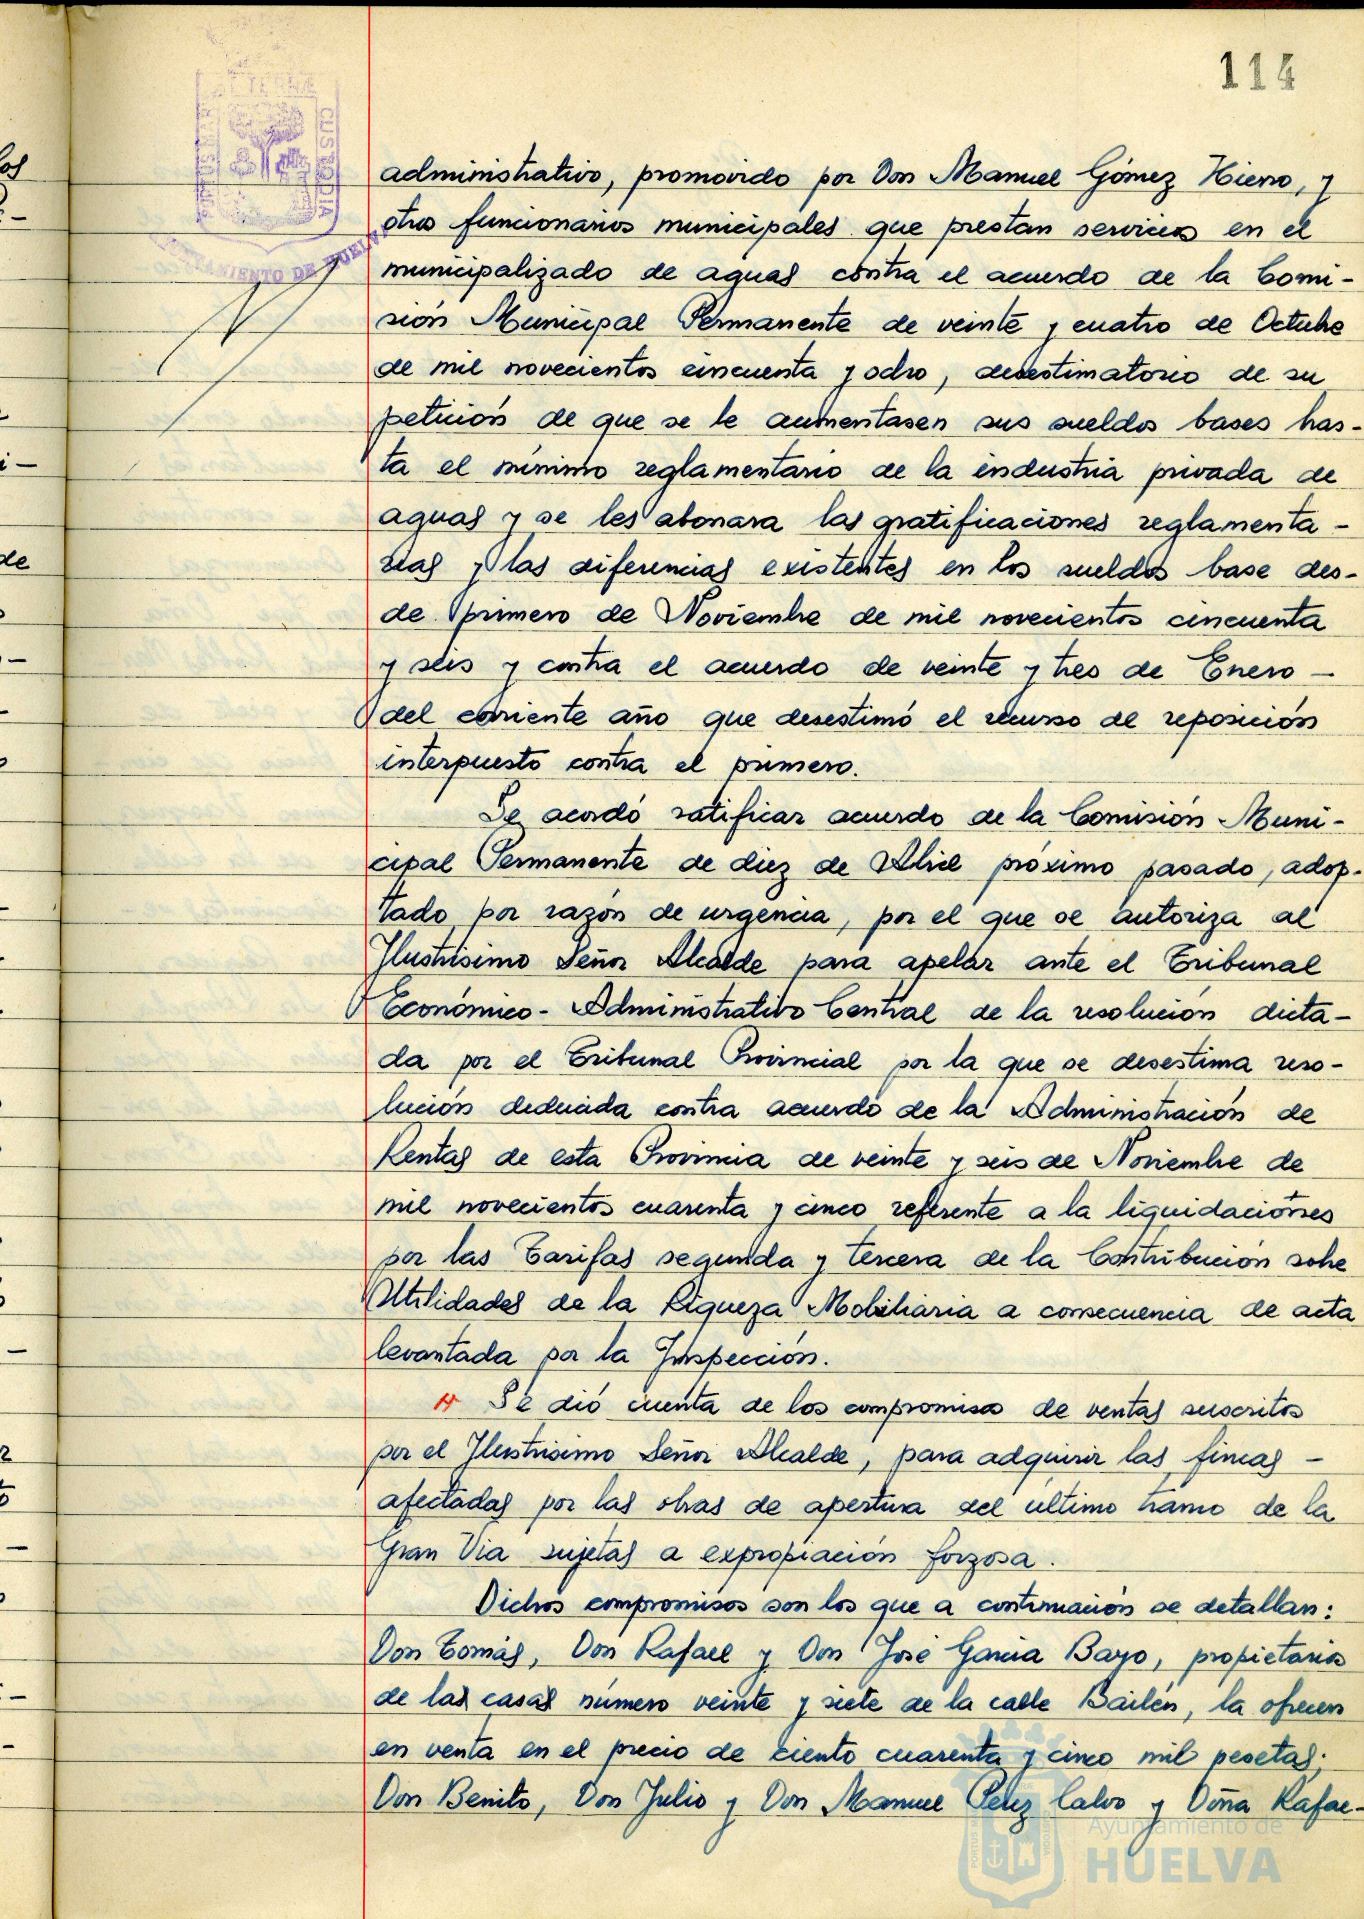 114
PORTUS MARIS ET TERRÆ CUSTODIA
AYUNTAMIENTO DE HUELVA
administrativo, promovido por Don Manuel Gómez Hierro, y
otros funcionarios municipales que prestan servicios en el
municipalizado de aguas contra el acuerdo de la Comi-
sión Municipal Permanente de veinte y cuatro de Octubre
de mil novecientos cincuenta y ocho, desestimatorio de su
petición de que se le aumentasen sus sueldos bases has-
ta el mínimo reglamentario de la industria privada de
aguas y se les abonara las gratificaciones reglamenta-
rias y las diferencias existentes en los sueldos base des-
de primero de Noviembre de mil novecientos cincuenta
y seis y contra el acuerdo de veinte y tres de Enero -
del corriente año que desestimó el recurso de reposición
interpuesto contra el primero.
Se acordó ratificar acuerdo de la Comisión Muni-
cipal Permanente de diez de Abril próximo pasado, adop-
tado por razón de urgencia, por el que se autoriza al
Ilustrísimo Señor Alcalde para apelar ante el Tribunal
Económico-Administrativo Central de la resolución dicta-
da por el Tribunal Provincial por la que se desestima reso-
lución deducida contra acuerdo de la Administración de
Rentas de esta Provincia de veinte y seis de Noviembre de
mil novecientos cuarenta y cinco referente a la liquidaciones
por las Tarifas segunda y tercera de la Contribución sobre
Utilidades de la Riqueza Mobiliaria a consecuencia de acta
levantada por la Inspección.
Se dió cuenta de los compromisos de ventas suscritos
por el Ilustrísimo Señor Alcalde, para adquirir las fincas -
afectadas por las obras de apertura del último tramo de la
Gran Vía sujetas a expropiación forzosa.
Dichos compromisos son los que a continuación se detallan:
Don Tomás, Don Rafael y Don José García Bayo, propietarios
de las casas número veinte y siete de la calle Bailén, la ofrecen
en venta en el precio de ciento cuarenta y cinco mil pesetas;
Don Benito, Don Julio y Don Manuel Pérez Calvo y Doña Rafae-
Ayuntamiento de
HUELVA